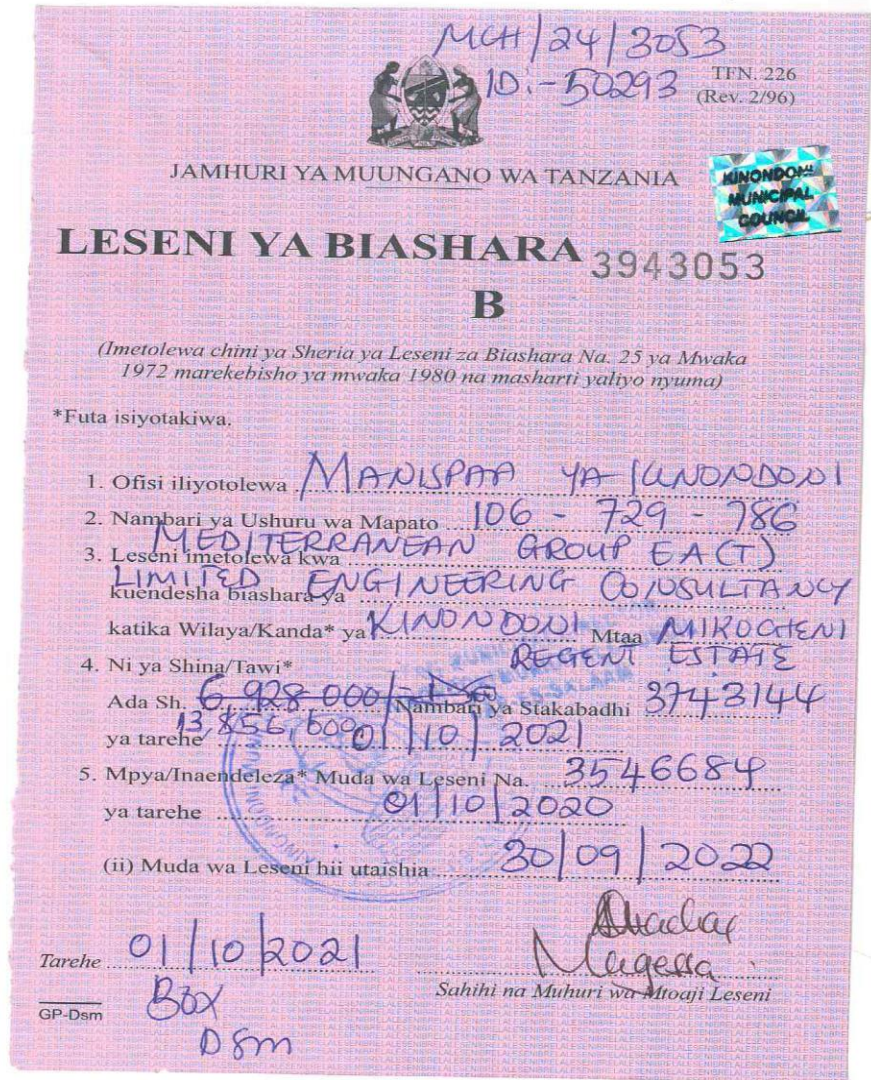 MCH/24/3053
ID:-50293
TFN. 226
(Rev. 2/96)
JAMHURI YA MUUNGANO WA TANZANIA
KINONDONI
MUNICIPAL
COUNCIL
LESENI YA BIASHARA 3943053
B
(Imetolewa chini ya Sheria ya Leseni za Biashara Na. 25 ya Mwaka
1972 marekebisho ya mwaka 1980 na masharti yaliyo nyuma)
*Futa isiyotakiwa.
1. Ofisi iliyotolewa MANISPAA YA KINONDONI
2. Nambari ya Ushuru wa Mapato 106 - 729 - 786
3. Leseni imetolewa kwa MEDITERRANEAN GROUP EA (T)
LIMITED
kuendesha biashara ya ENGINEERING CONSULTANCY
katika Wilaya/Kanda* ya KINONDONI Mtaa MIKOCHENI
REGENT ESTATE
4. Ni ya Shina/Tawi*
Ada Sh. 6,928 000/= Nambari ya Stakabadhi 3743144
13,856,600
ya tarehe 01/10/2021
5. Mpya/Inaendeleza* Muda wa Leseni Na. 3546684
ya tarehe 01/10/2020
(ii) Muda wa Leseni hii utaishia 30/09/2022
Tarehe 01/10/2021
Magessa
Sahihi na Muhuri wa Mtoaji Leseni
GP-Dsm
Box
Dsm